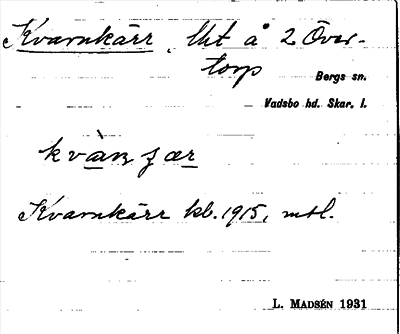 Kvarnkärr, Utt å 2 Över-
torp
Bergs sn.
Vadsbo hd. Skar. l.
kvàrn ʃær
Kvarnkärr kb. 1915, mtl.
L. MADSÉN 1931